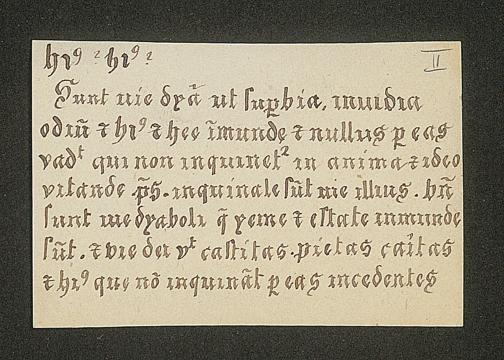 hiꝰ ? hiꝰ ? II
Sunt uie dyā ut suꝑbia, inuidia
odiū ⁊ hiꝰ ⁊ hee īmunde ⁊ nullus p eas
vadᵗ qui non inquinet² in anima ⁊ ideo
vitande. p̄s. inquinate sūt uie illius. bn̄
sunt uie dyaboli q̄ yeme ⁊ estate inmunde
sūt. ⁊ vie dei vᵗ castitas. pietas caītas
⁊ hiꝰ que nō inquināt p eas incedentes